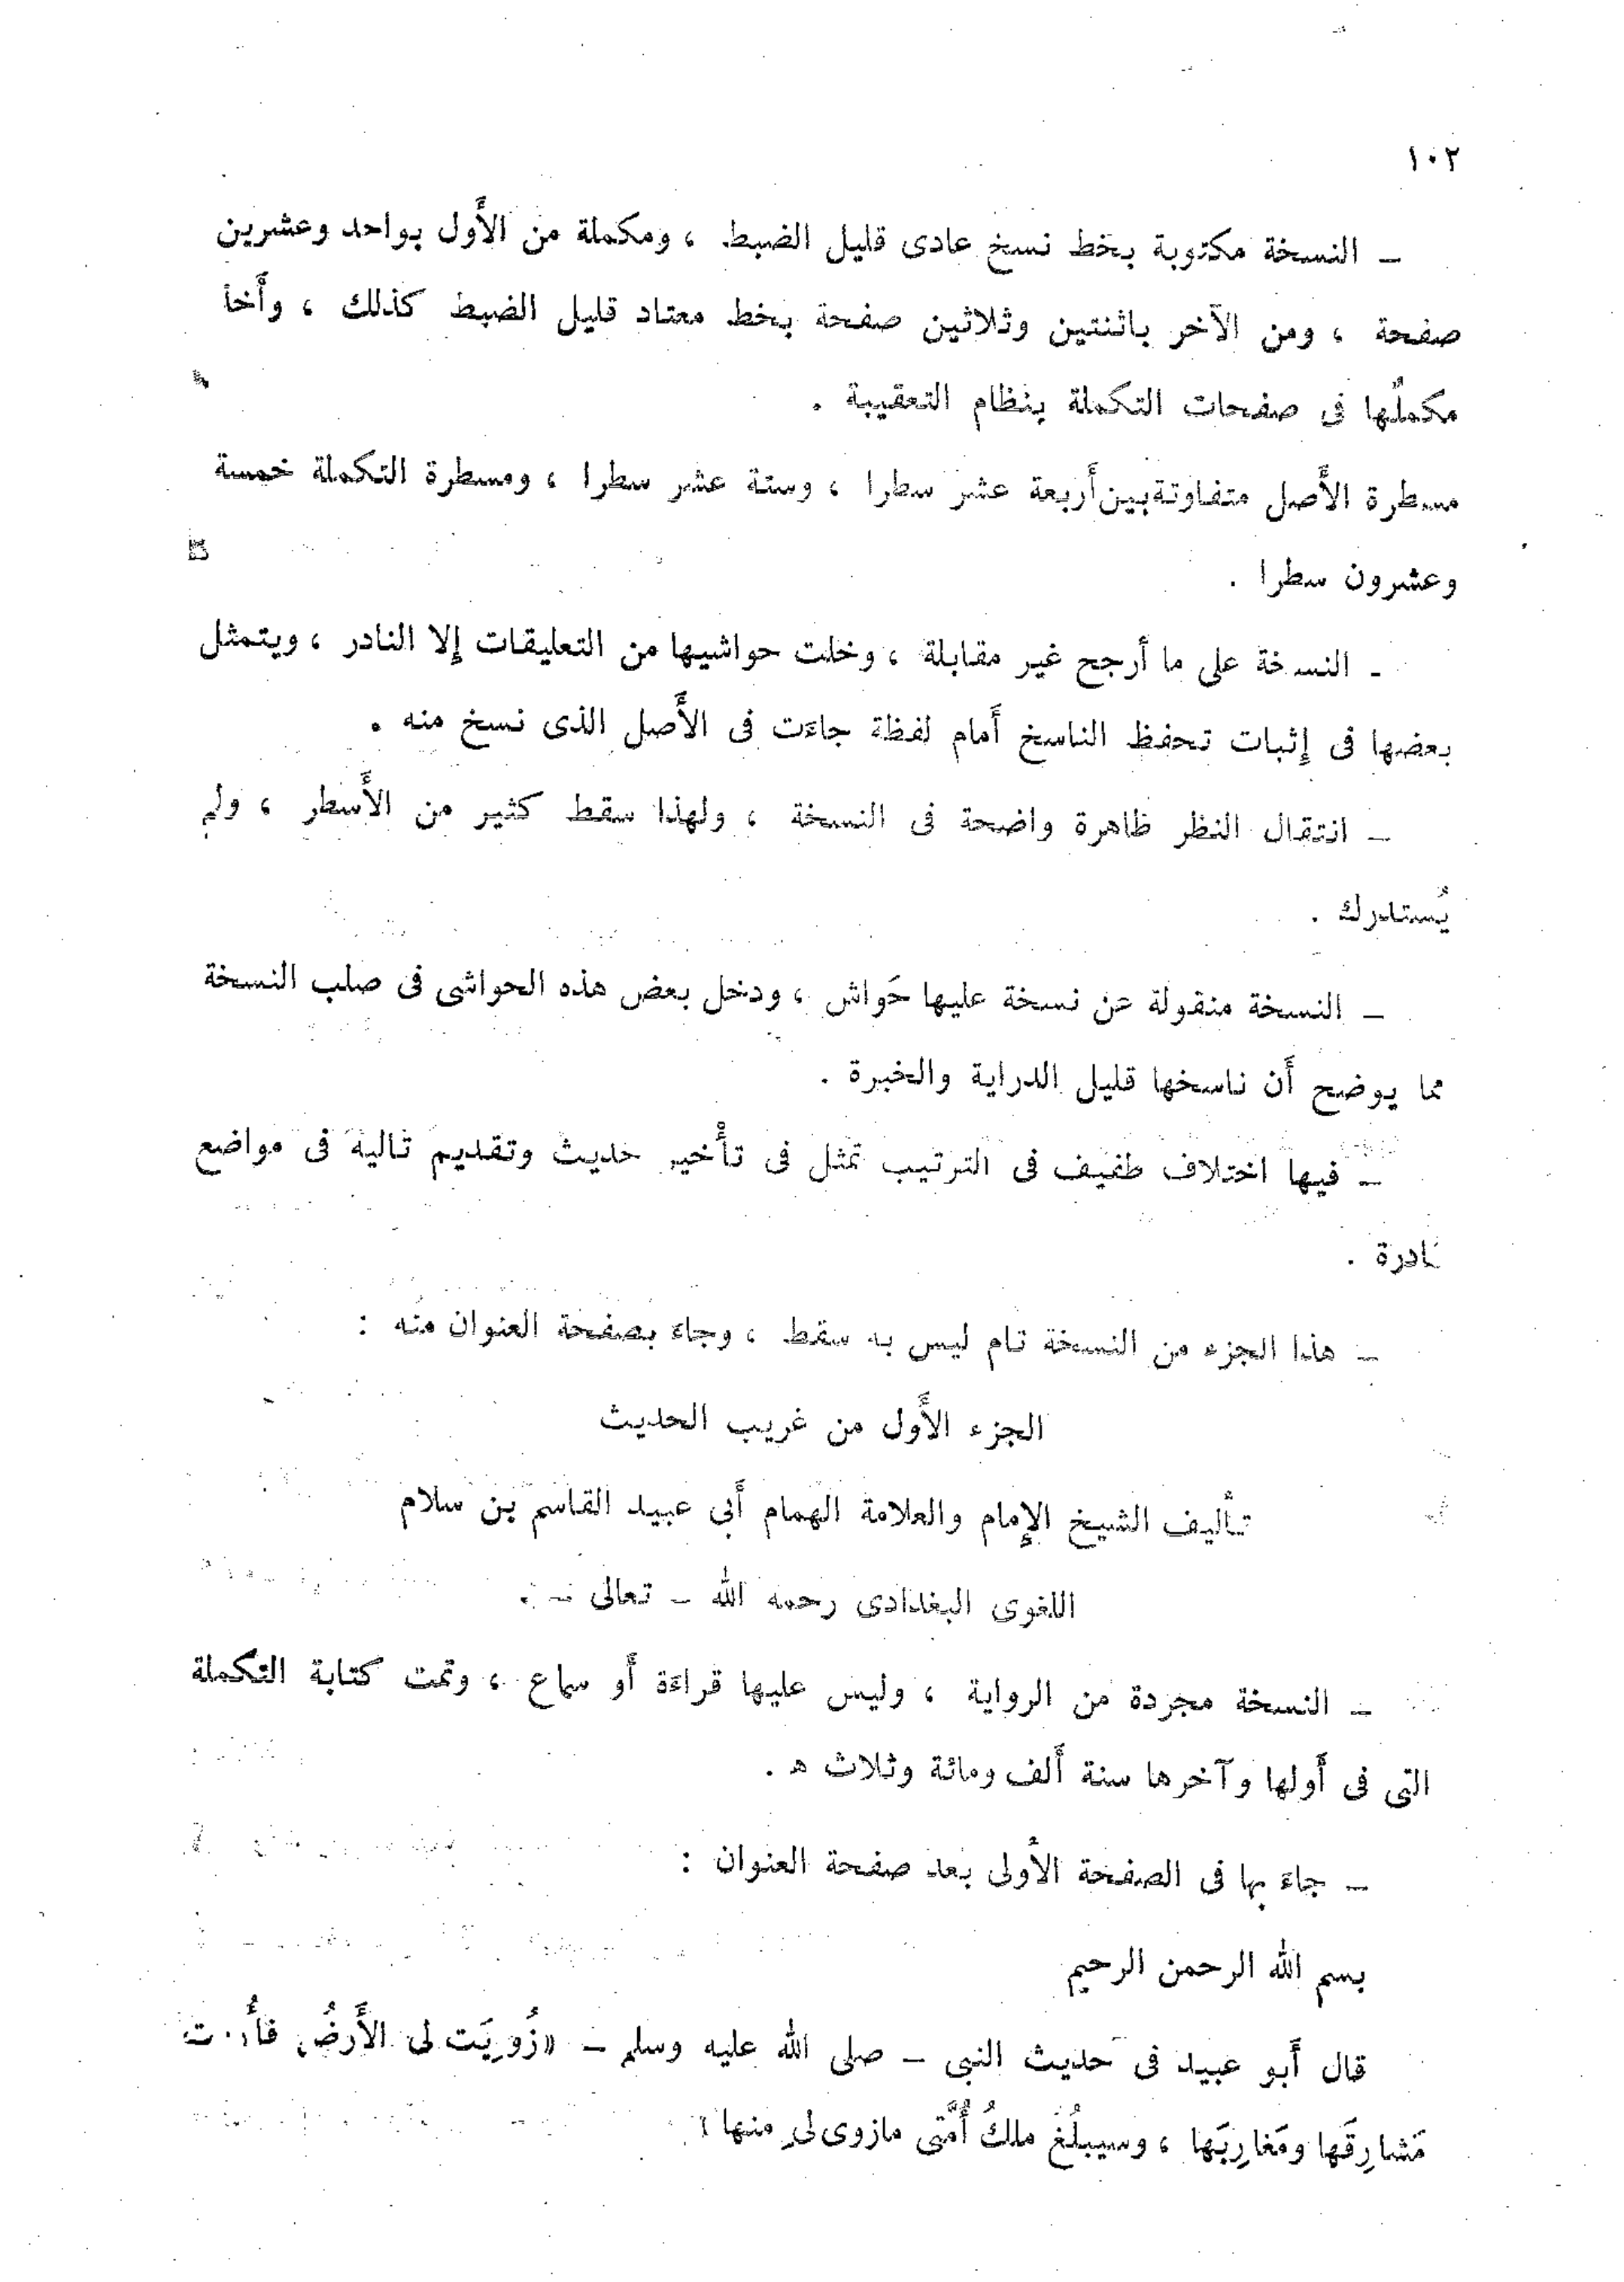 ١٠٢
ـ النسخة مكتوبة بخط نسخ عادى قليل الضبط ، ومكملة من الأَول بواحد وعشرين
صفحة ، ومن الآخر باثنتين وثلاثين صفحة بخط معتاد قليل الضبط كذلك ، وأَخذ
مكملُها فى صفحات التكملة بنظام التعقيبة .
مسطرة الأَصل متفاوتة بين أَربعة عشر سطرا ، وستة عشر سطرا ، ومسطرة التكملة خمسة
وعشرون سطرا .
ـ النسخة على ما أرجح غير مقابلة ، وخلت حواشيها من التعليقات إلا النادر ، ويتمثل
بعضها فى إثبات تحفظ الناسخ أَمام لفظة جاءَت فى الأَصل الذى نسخ منه .
ـ انتقال النظر ظاهرة واضحة فى النسخة ، ولهذا سقط كثير من الأَسطر ، ولم
يُستدرك .
ـ النسخة منقولة عن نسخة عليها حَواش ، ودخل بعض هذه الحواشى فى صلب النسخة
مما يوضح أَن ناسخها قليل الدراية والخبرة .
ـ فيها اختلاف طفيف فى الترتيب تمثل فى تأْخير حديث وتقديم تاليه فى مواضع
نادرة .
ـ هذا الجزء من النسخة تام ليس به سقط ، وجاءَ بصفحة العنوان منه :
الجزء الأَول من غريب الحديث
تأليف الشيخ الإمام والعلامة الهمام أَبى عبيد القاسم بن سلام
اللغوى البغدادى رحمه الله ـ تعالى ـ .
ـ النسخة مجردة من الرواية ، وليس عليها قراءَة أَو سماع ، وتمت كتابة التكملة
التى فى أَولها وآخرها سنة أَلف ومائة وثلاث ه .
ـ جاءَ بها فى الصفحة الأُولى بعد صفحة العنوان :
بسم الله الرحمن الرحيم
قال أَبو عبيد فى حديث النبى ـ صلى الله عليه وسلم ـ «زُوِيَت لى الأَرضُ
مَشارِقَها ومَغارِبَها ، وسيبلُغ ملكُ أُمَّتى مازوى لىِ منها»